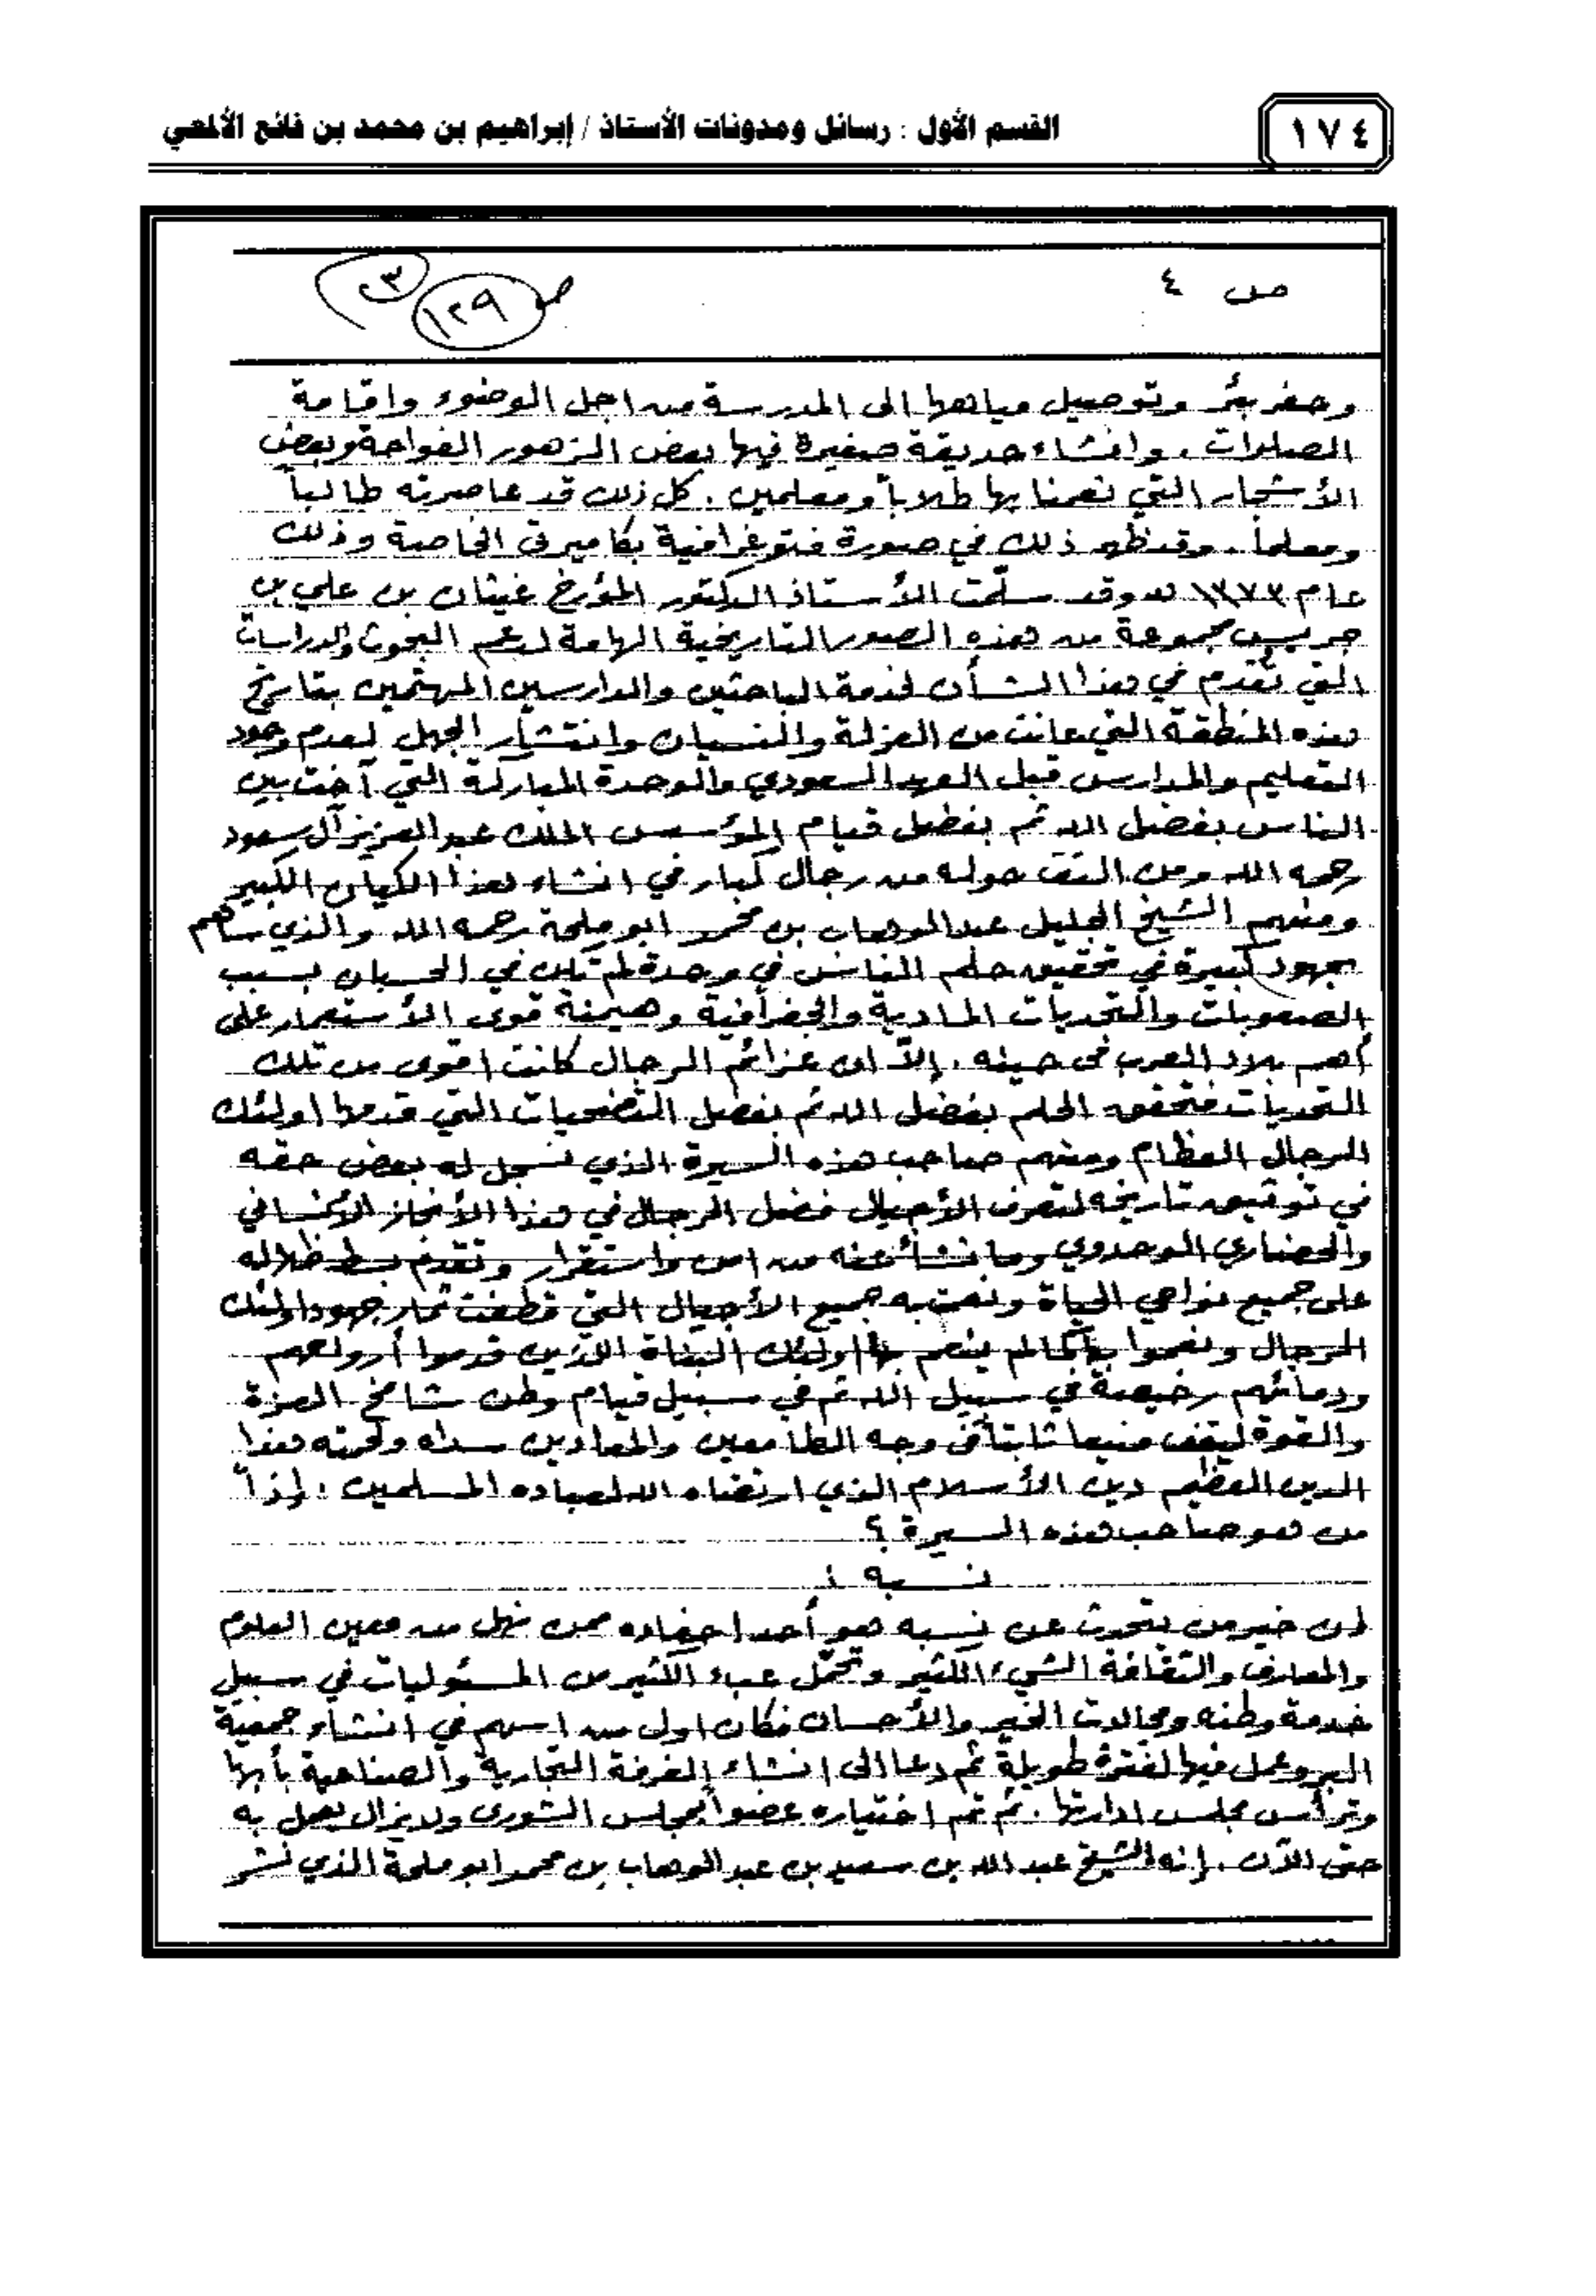 القسم الأول : رسائل ومدونات الأستاذ / إبراهيم بن محمد بن فائع الألمعي
١٧٤
ص ٤
ص ١٢٩
٣
وحفر بئر وتوصيل مياهها الى المدرسة من اجل الوضوء واقامة
الصلوات . وانشاء حديقة صغيرة فيها بعض الزهور الفواحة وبعض
الأشجار التي نعمنا بها طلاباً ومعلمين . كل ذلك قد عاصرته طالباً
ومعلماً . وقد ظهر ذلك في صورة فتوغرافية بكاميرتي الخاصة وذلك
عام ١٣٧٣ هـ وقد سلّمت الأستاذ الدكتور المؤرخ غيثان بن علي بن
جريس مجموعة من هذه الصور التاريخية الهامة لدعم البحوث والدراسات
التي تُقدم في هذا الشأن لخدمة الباحثين والدارسين المهتمين بتاريخ
هذه المنطقة التي عانت من العزلة والنسيان وانتشار الجهل لعدم وجود
التعليم والمدارس قبل العهد السعودي والوحدة المباركة التي آخت بين
الناس بفضل الله ثم بفضل قيام المؤسس الملك عبدالعزيز آل سعود
رحمه الله ومن التف حوله من رجال كبار في انشاء هذا الكيان الكبير
ومنهم الشيخ الجليل عبدالوهاب بن محمد ابو ملحة رحمه الله والذي ساهم
بجهود كبيرة في تحقيق حلم الناس في وحدة لم تكن في الحسبان بسبب
الصعوبات والتحديات المادية والجغرافية وهيمنة قوى الأستعمار على
أهم بلاد العرب في حينه . إلاّ ان عزائم الرجال كانت اقوى من تلك
التحديات فتحقق الحلم بفضل الله ثم بفضل التضحيات التي قدمها اولئك
الرجال العظام ومنهم صاحب هذه السيرة الذي نسجل له بعض حقه
في توثيق تاريخه لتعرف الأجيال فضل الرجال في هذا الأنجاز الأنساني
والحضاري الوحدوي وما نشأ عنه من امن واستقرار وتقدم بسط ظلاله
على جميع نواحي الحياة ونعمت به جميع الأجيال التي قطفت ثمار جهود اولئك
الرجال ونعموا بها كما لم ينعم بها اولئك البناة الذين قدموا أرواحهم
ودمائهم رخيصة في سبيل الله ثم في سبيل قيام وطن شامخ العزة
والقوة ليقف منيعا ثابتاً في وجه الطامعين والمعادين سداه ولحمته هذا
الدين العظيم دين الأسلام الذي ارتضاه الله لعباده المسلمين : إذاً
من هو صاحب هذه السيرة ؟
نسبه :
إن خير من يتحدث عن نسبه هو أحد احفاده ممن نهل من معين العلوم
والمعارف والثقافة الشيء الكثير وتحمّل عبء الكثير من المسئوليات في سبيل
خدمة وطنه ومجالات الخير والأحسان فكان اول من اسهم في انشاء جمعية
البر وعمل فيها لفترة طويلة ثم دعا الى انشاء الغرفة التجارية والصناعية بأبها
وترأس مجلس ادارتها . ثم تم اختياره عضواً بمجلس الشورى ولا يزال يعمل به
حتى الآن . إنه الشيخ عبد الله بن سعيد بن عبد الوهاب بن محمد ابو ملحة الذي نشر